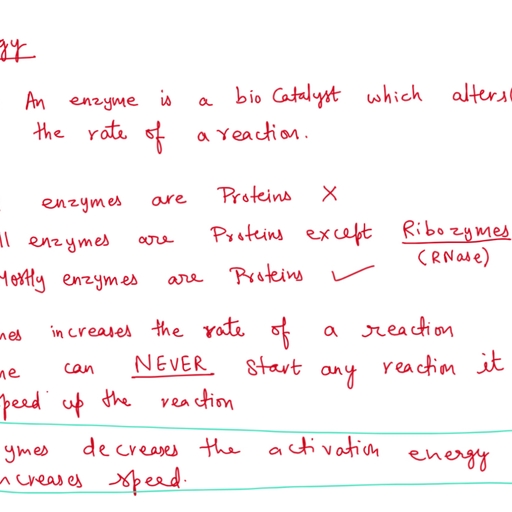 gy
An enzyme is a bio catalyst which alters(
the rate of a reaction.
enzymes are Proteins X
ll enzymes are Proteins except Ribozymes
(RNase)
Mostly enzymes are Proteins ✓
mes increases the rate of a reaction
me can NEVER start any reaction it
peed up the reaction
ymes decreases the activation energy
ncreases speed.